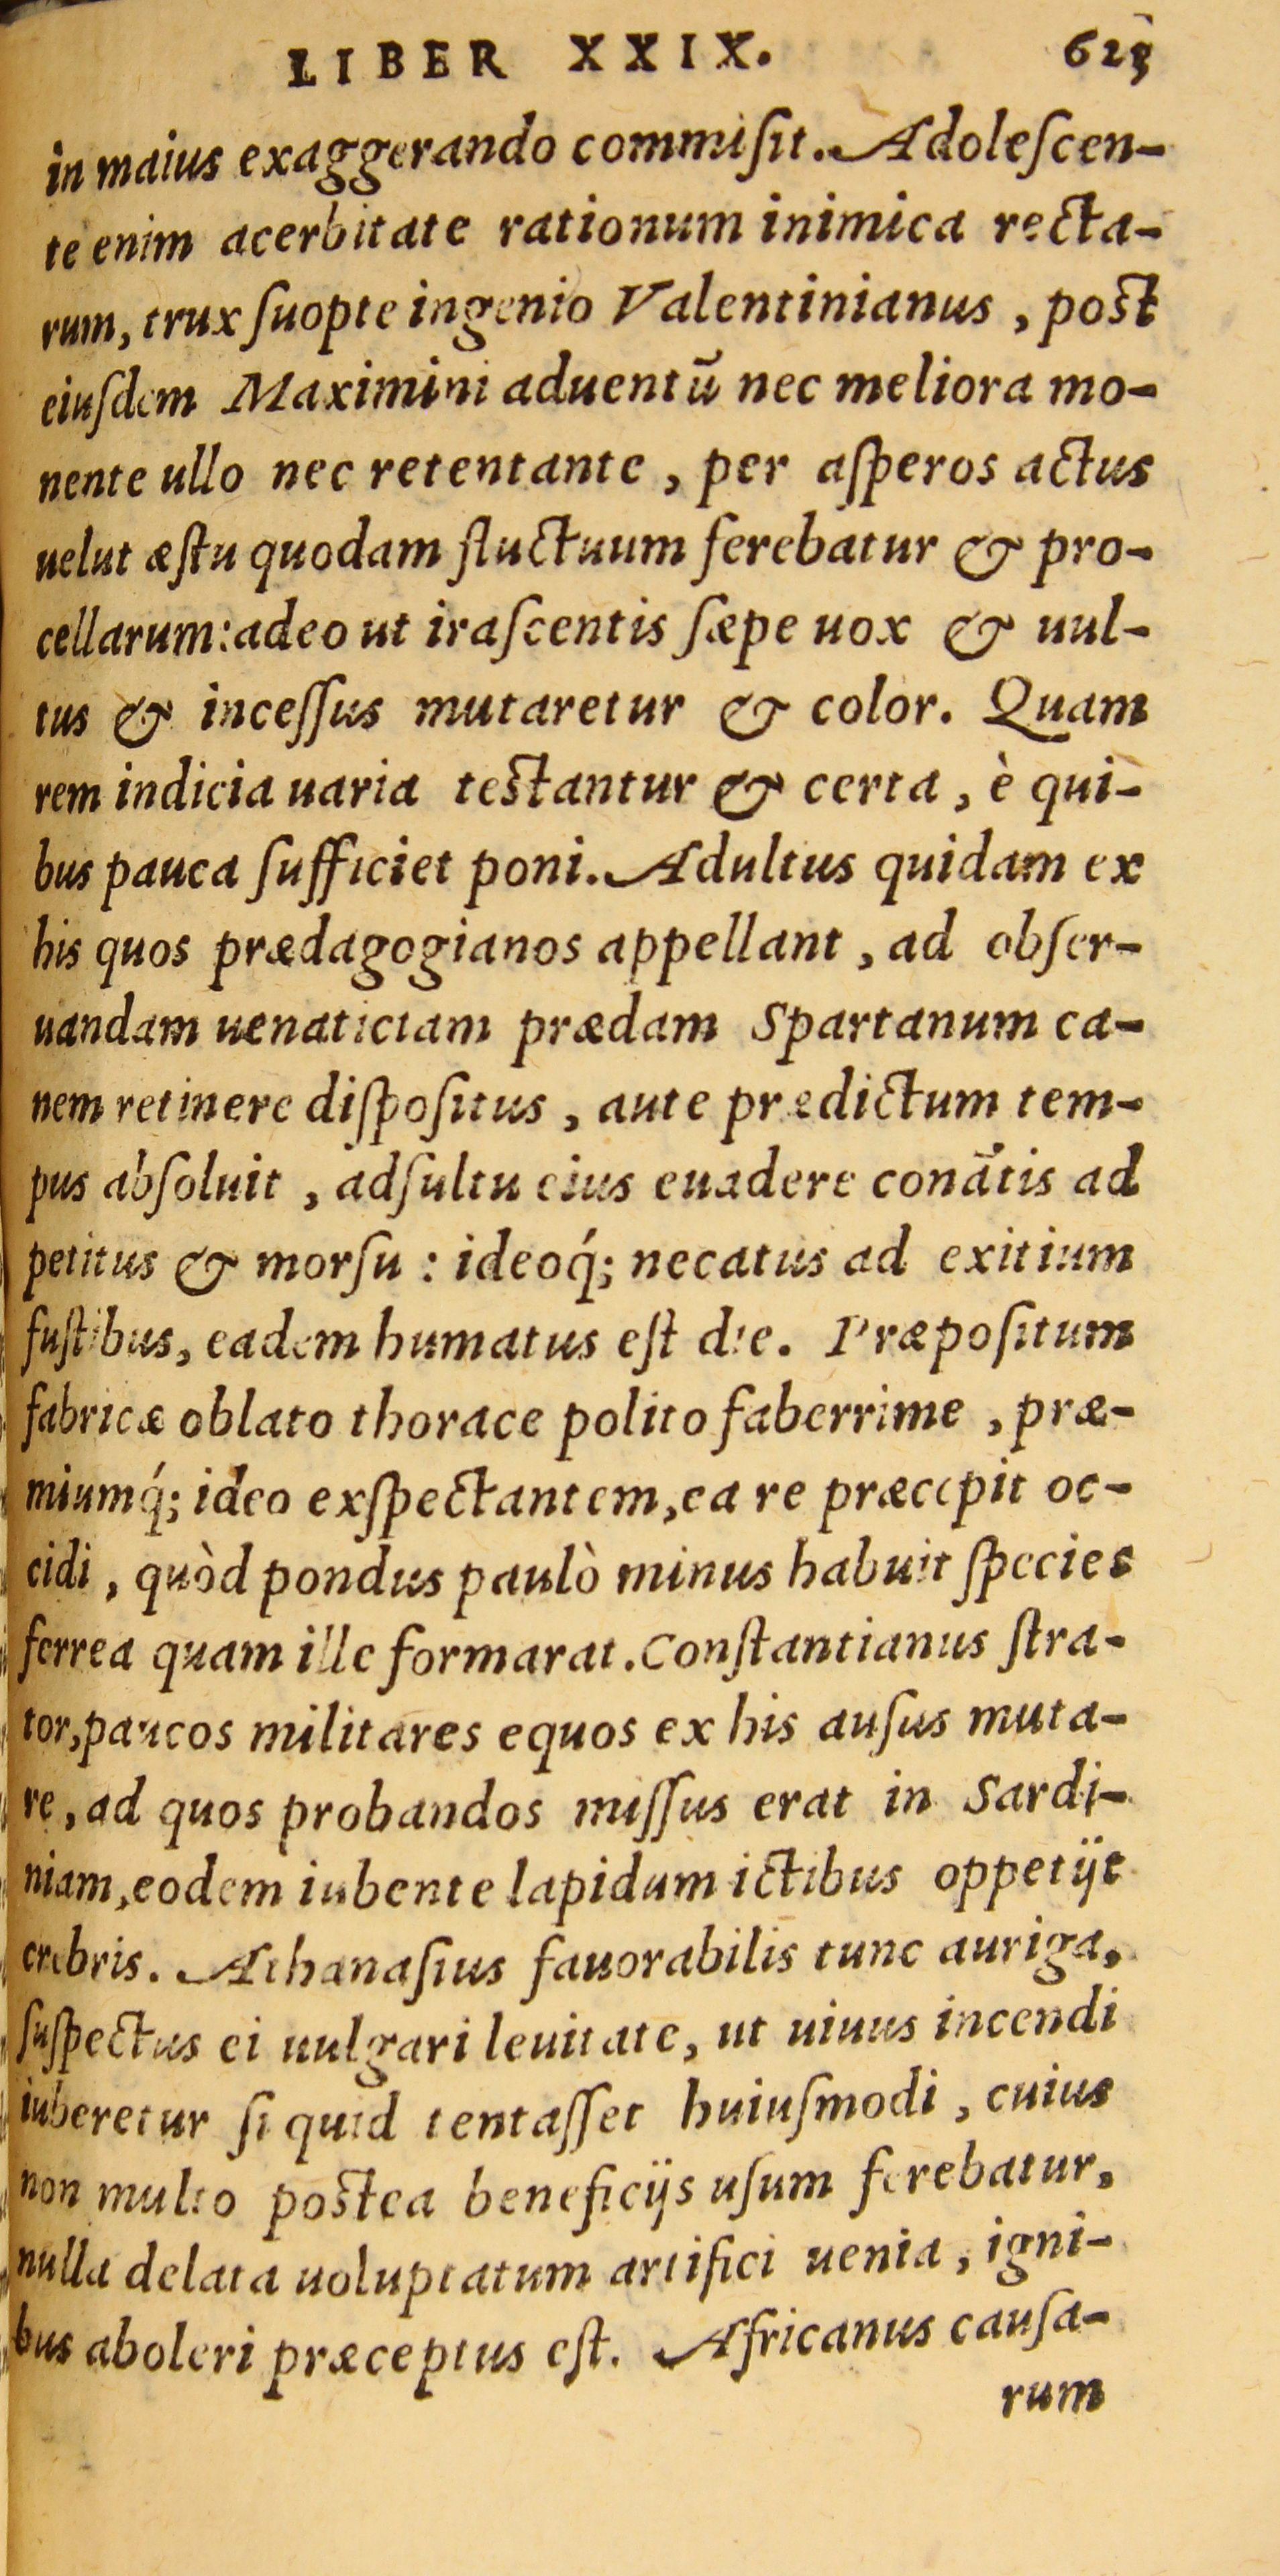 LIBER XXIX.
in maius exaggerando commiſit. Adoleſcen-
te enim acerbitate rationum inimica recta-
rum, trux ſuopte ingenio Valentinianus, post
eiuſdem Maximini aduentū nec meliora mo-
nente ullo nec retentante, per aſperos actus
uelut æſtu quodam fluctuum ferebatur & pro-
cellarum: adeo ut iraſcentis ſæpe uox & uul-
tus & inceſſus mutaretur & color. Quam
rem indicia uaria testantur & certa, è qui-
bus pauca ſufficiet poni. Adultus quidam ex
his quos prædagogianos appellant, ad obſer-
uandam uenaticiam prædam Spartanum ca-
nem retinere diſpoſitus, aute prædictum tem-
pus abſoluit, adſultu eius euadere conātis ad
petitus & morſu: ideoq́; necatus ad exitium
fuſtibus, eadem humatus eſt die. Præpoſitum
fabricæ oblato thorace polito faberrime, præ-
miumq́; ideo exſpectantem, ea re præcepit oc-
cidi, quòd pondus paulò minus habuit ſpecies
ferrea quam ille formarat. Conſtantianus ſtra-
tor, paucos militares equos ex his auſus muta-
re, ad quos probandos miſſus erat in Sardi-
niam, eodem iubente lapidum ictibus oppetijt
crebris. Athanaſius fauorabilis tunc auriga,
ſuſpectus ei uulgari leuitate, ut uiuus incendi
iuberetur ſi quid tentaſſet huiuſmodi, cuius
non multo postea beneficijs uſum ferebatur,
nulla delata uoluptatum artifici uenia, igni-
bus aboleri præceptus eſt. Africanus cauſa-
rum